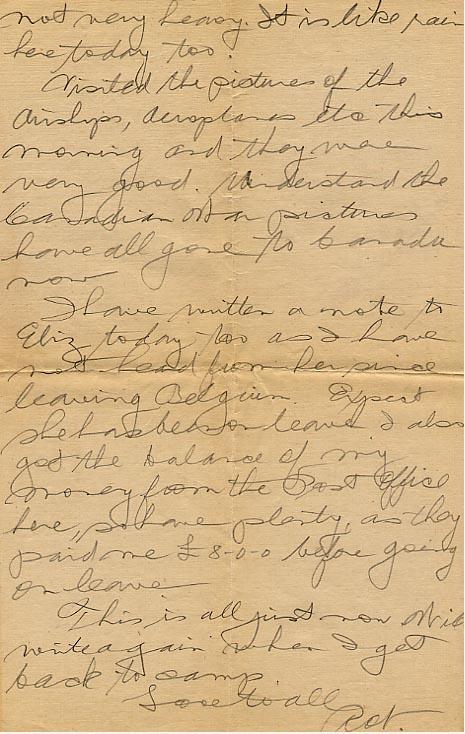 not very heavy. It is like rain
here today too.
Visited the pictures of the
Airships, Aeroplanes etc this
morning and they were
very good. Understand the
Canadian War pictures
have all gone to Canada
now
I have written a note to
Eliz today too as I have
not heard from her since
leaving Belgium. Expect
she has been on leave I also
got the balance of my
money from the Post Office
here, so have plenty, as they
paid me £8-0-0 before going
on leave
This is all just now Will
write again when I get
back to camp
Love to all
Rob.